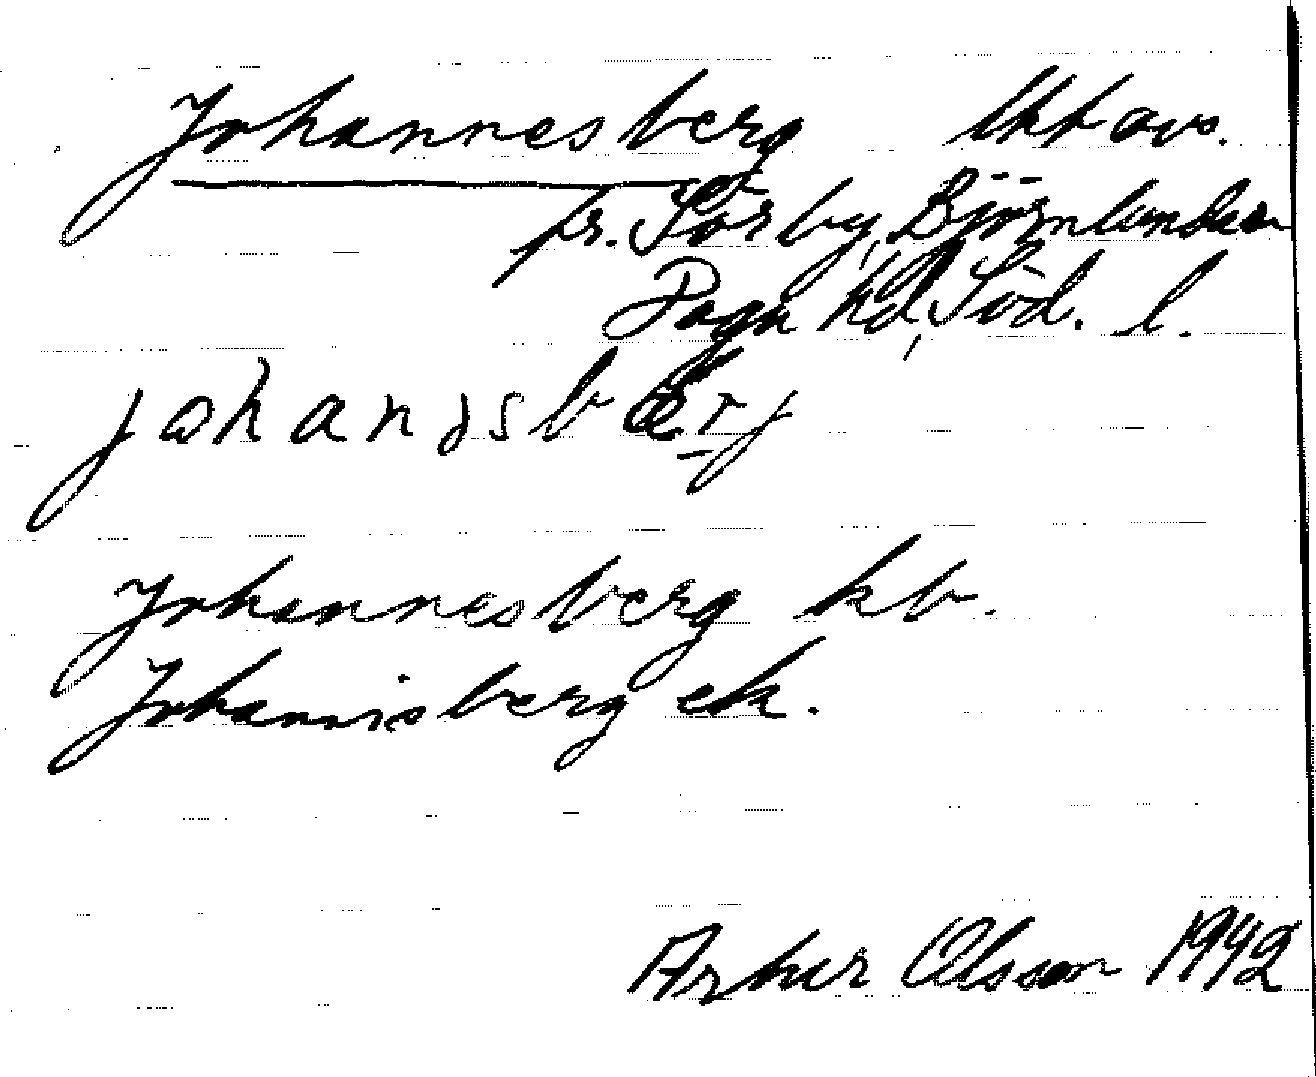 Johannesberg lht avs.
fr. Sörby, Björnlunda sn
Daga hd, Söd. l.
johanəsbærj
Johannesberg kb.
Johannisberg ek.
Artur Olsson 1942